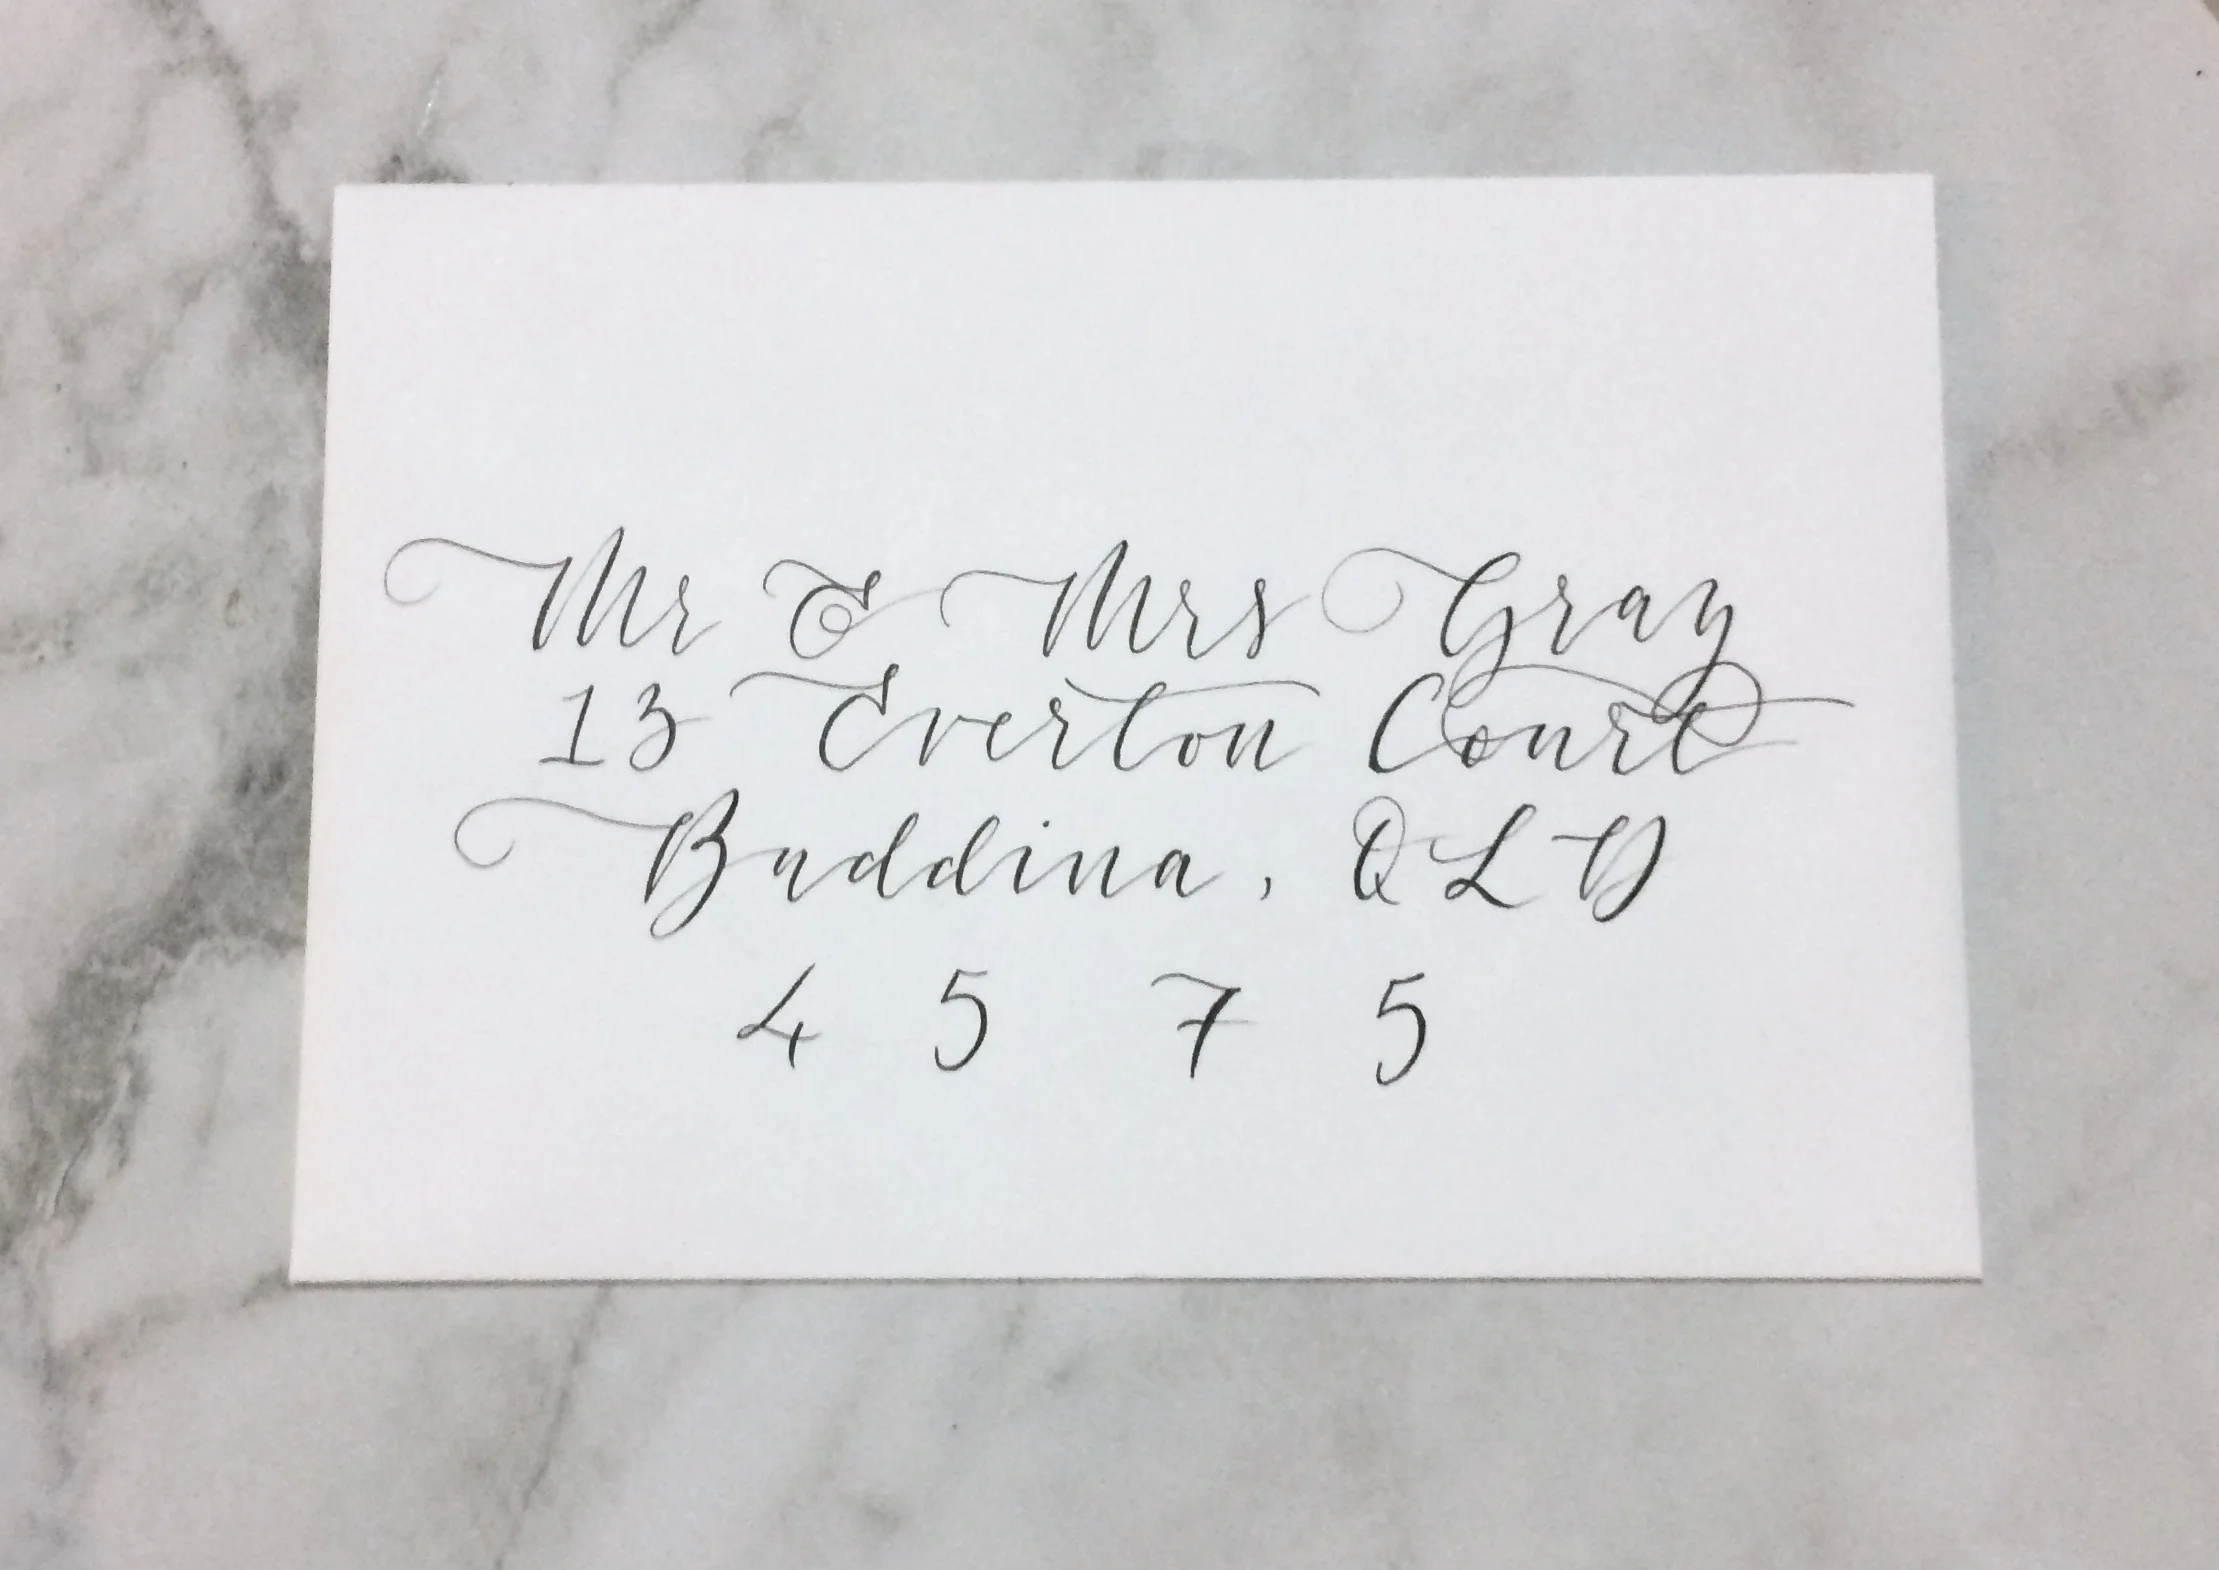 Mr & Mrs Gray
13 Everton Court
Buddina, QLD
4575